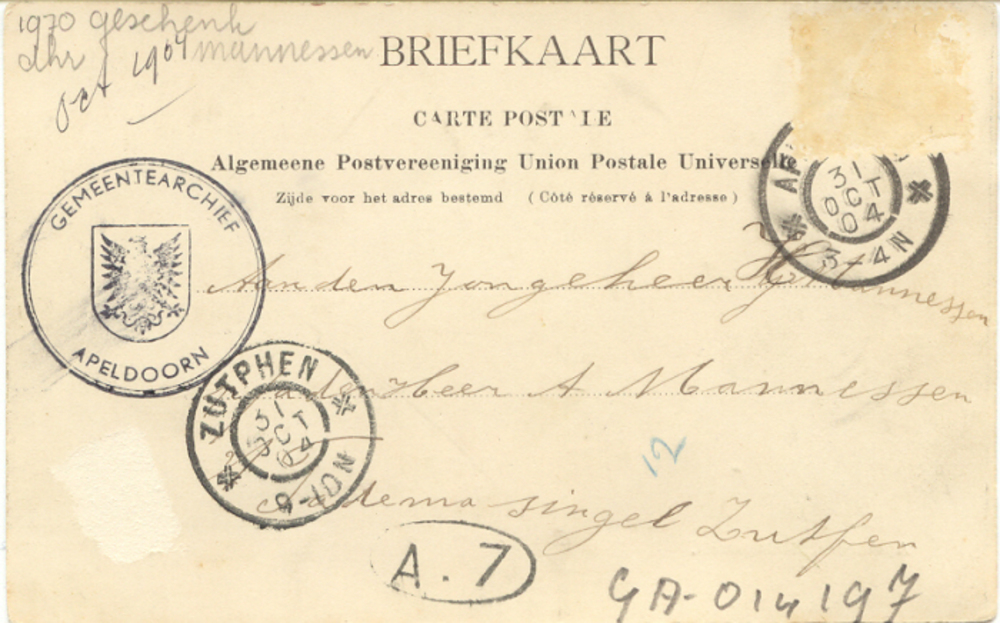 1970 geschenk
dhr Mannessen
Oct 1904
BRIEFKAART
CARTE POSTALE
Algemeene Postvereeniging Union Postale Universelle
Zijde voor het adres bestemd (Côté réservé à l'adresse)
AP
31
OCT
04
3-4N
GEMEENTEARCHIEF
APELDOORN
Aan den Jongeheer Mannessen
den Heer A Mannessen
ZUTPHEN
31
OCT
04
9-10N
12
singel Zutfen
A.7
GA-014197